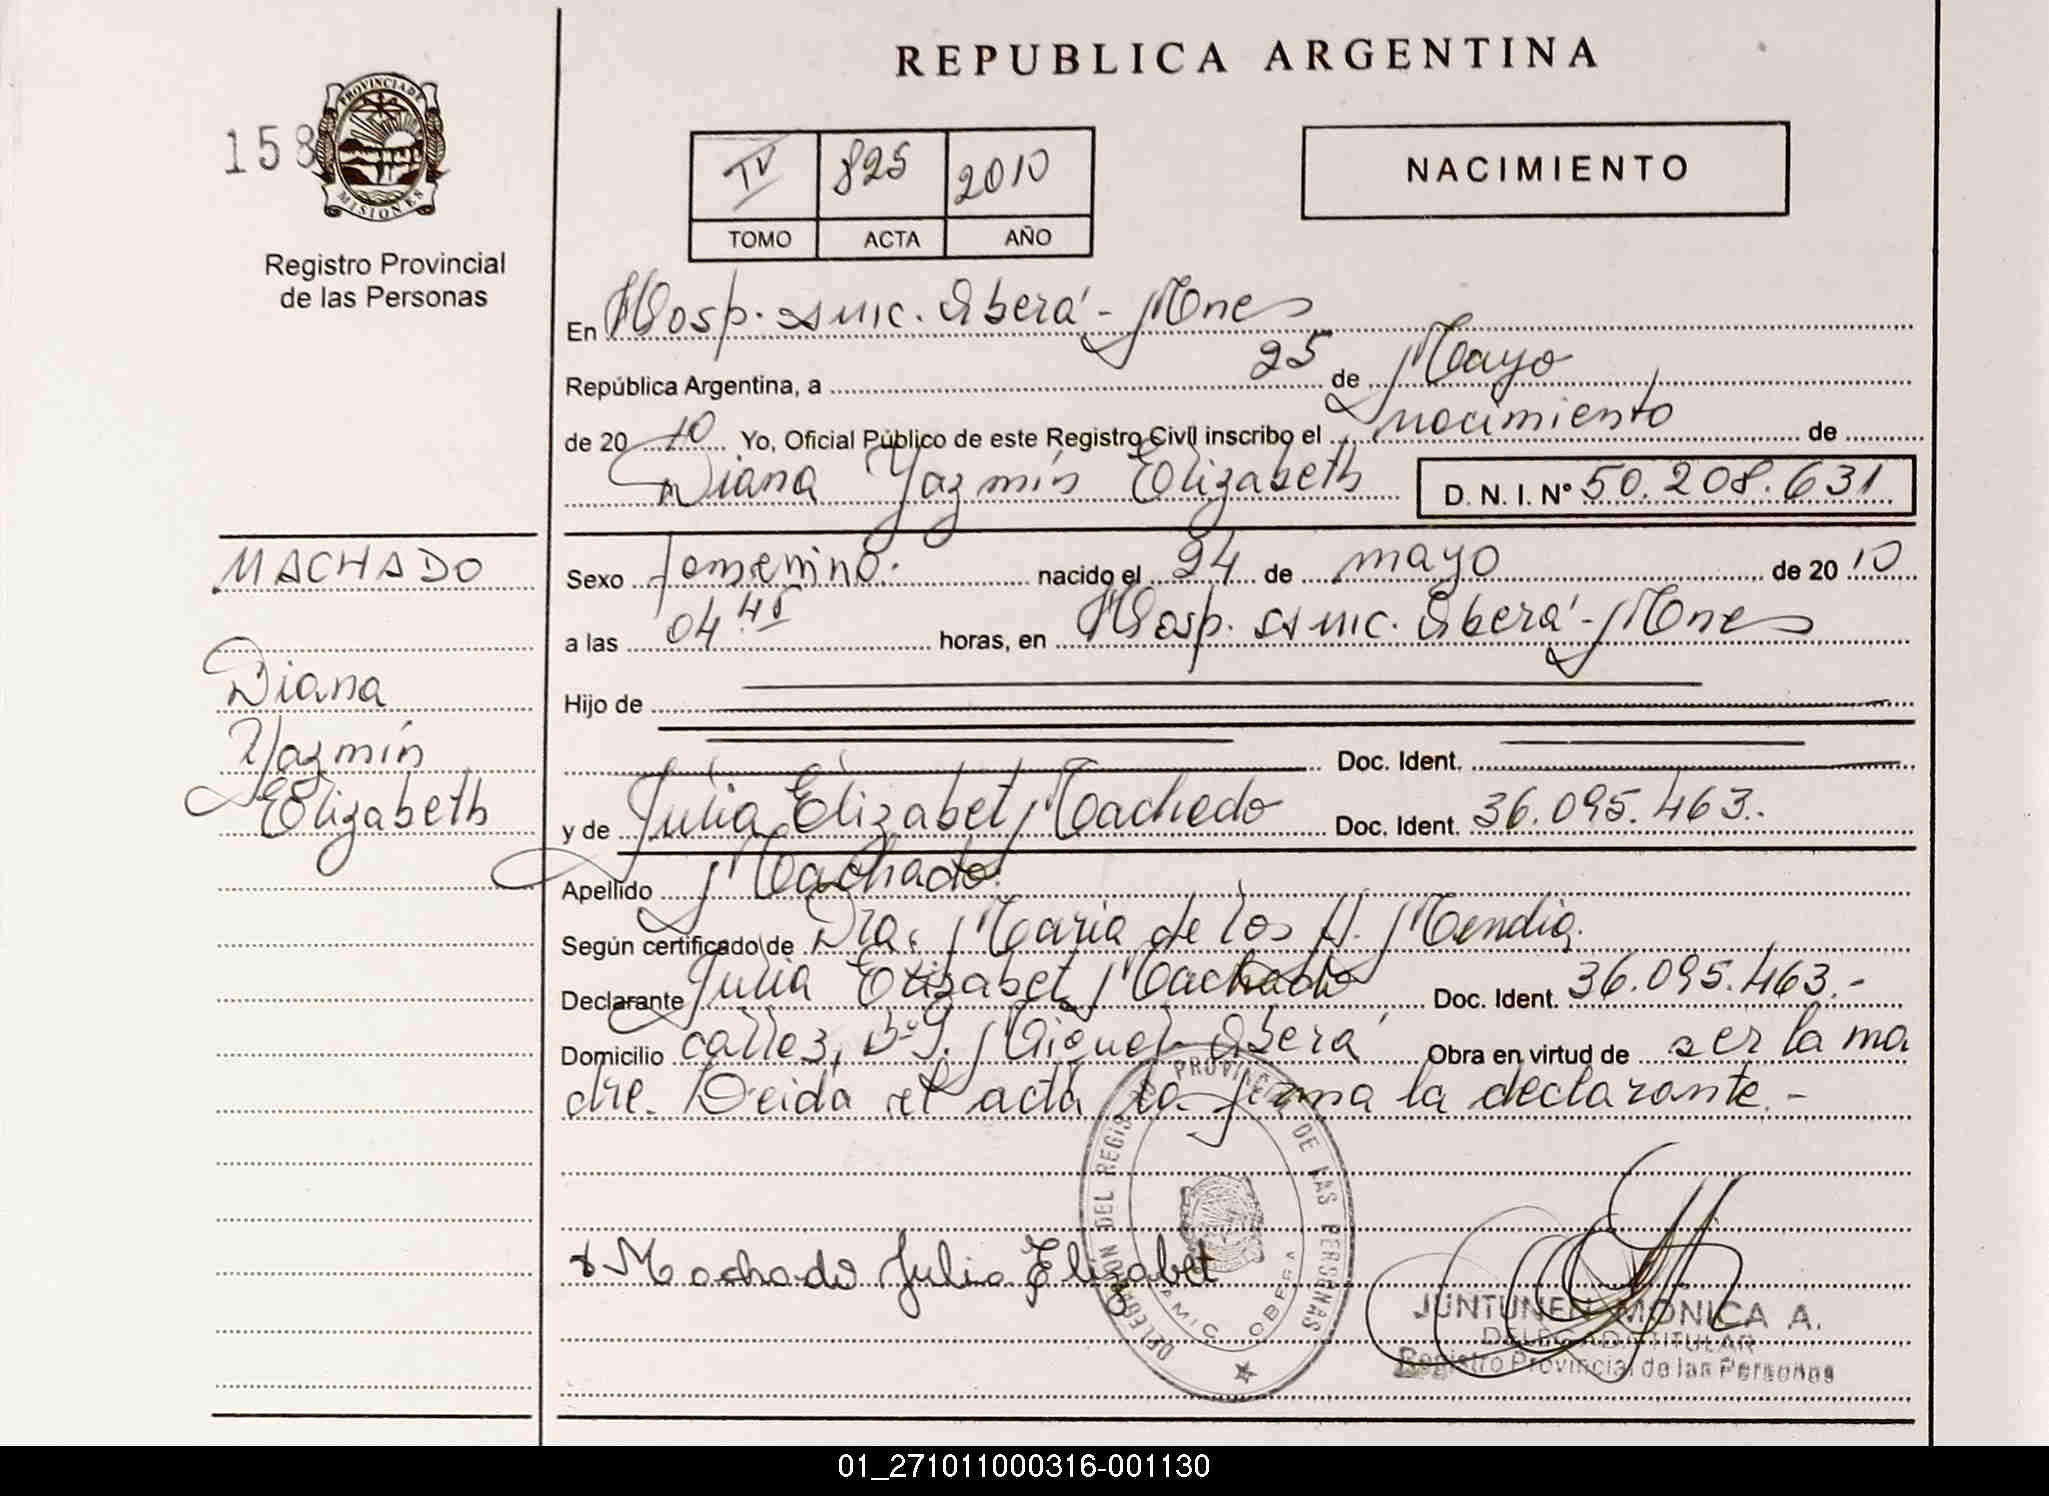 REPUBLICA ARGENTINA
158
PROVINCIA DE
MISIONES
Registro Provincial
de las Personas
IV 825 2010
TOMO ACTA AÑO
NACIMIENTO
En Hosp. Samic. Oberá - Mnes
República Argentina, a 25 de Mayo
de 20 10 Yo, Oficial Público de este Registro Civil inscribo el nacimiento de
Diana Yazmín Elizabeth D. N. I. Nº 50.208.631
MACHADO
Diana
Yazmín
Elizabeth
Sexo femenino. nacido el 24 de mayo de 20 10
a las 04.45 horas, en Hosp. Samic. Oberá - Mnes
Hijo de
Doc. Ident.
y de Julia Elizabet Machado Doc. Ident. 36.095.463.
Apellido Machado.
Según certificado de Dra. María de los A. Mendia.
Declarante Julia Elizabet Machado Doc. Ident. 36.095.463.-
Domicilio calle 3, Bº S. Miguel - Oberá Obra en virtud de ser la ma
dre. Leida el acta la firma la declarante.-
PROVINCIAL DE LAS PERSONAS
DELEGACION DEL REGISTRO
SAMIC OBERA
Machado Julia Elizabet
JUNTUNEN MONICA A.
DELEGADA TITULAR
Registro Provincial de las Personas
01_271011000316-001130